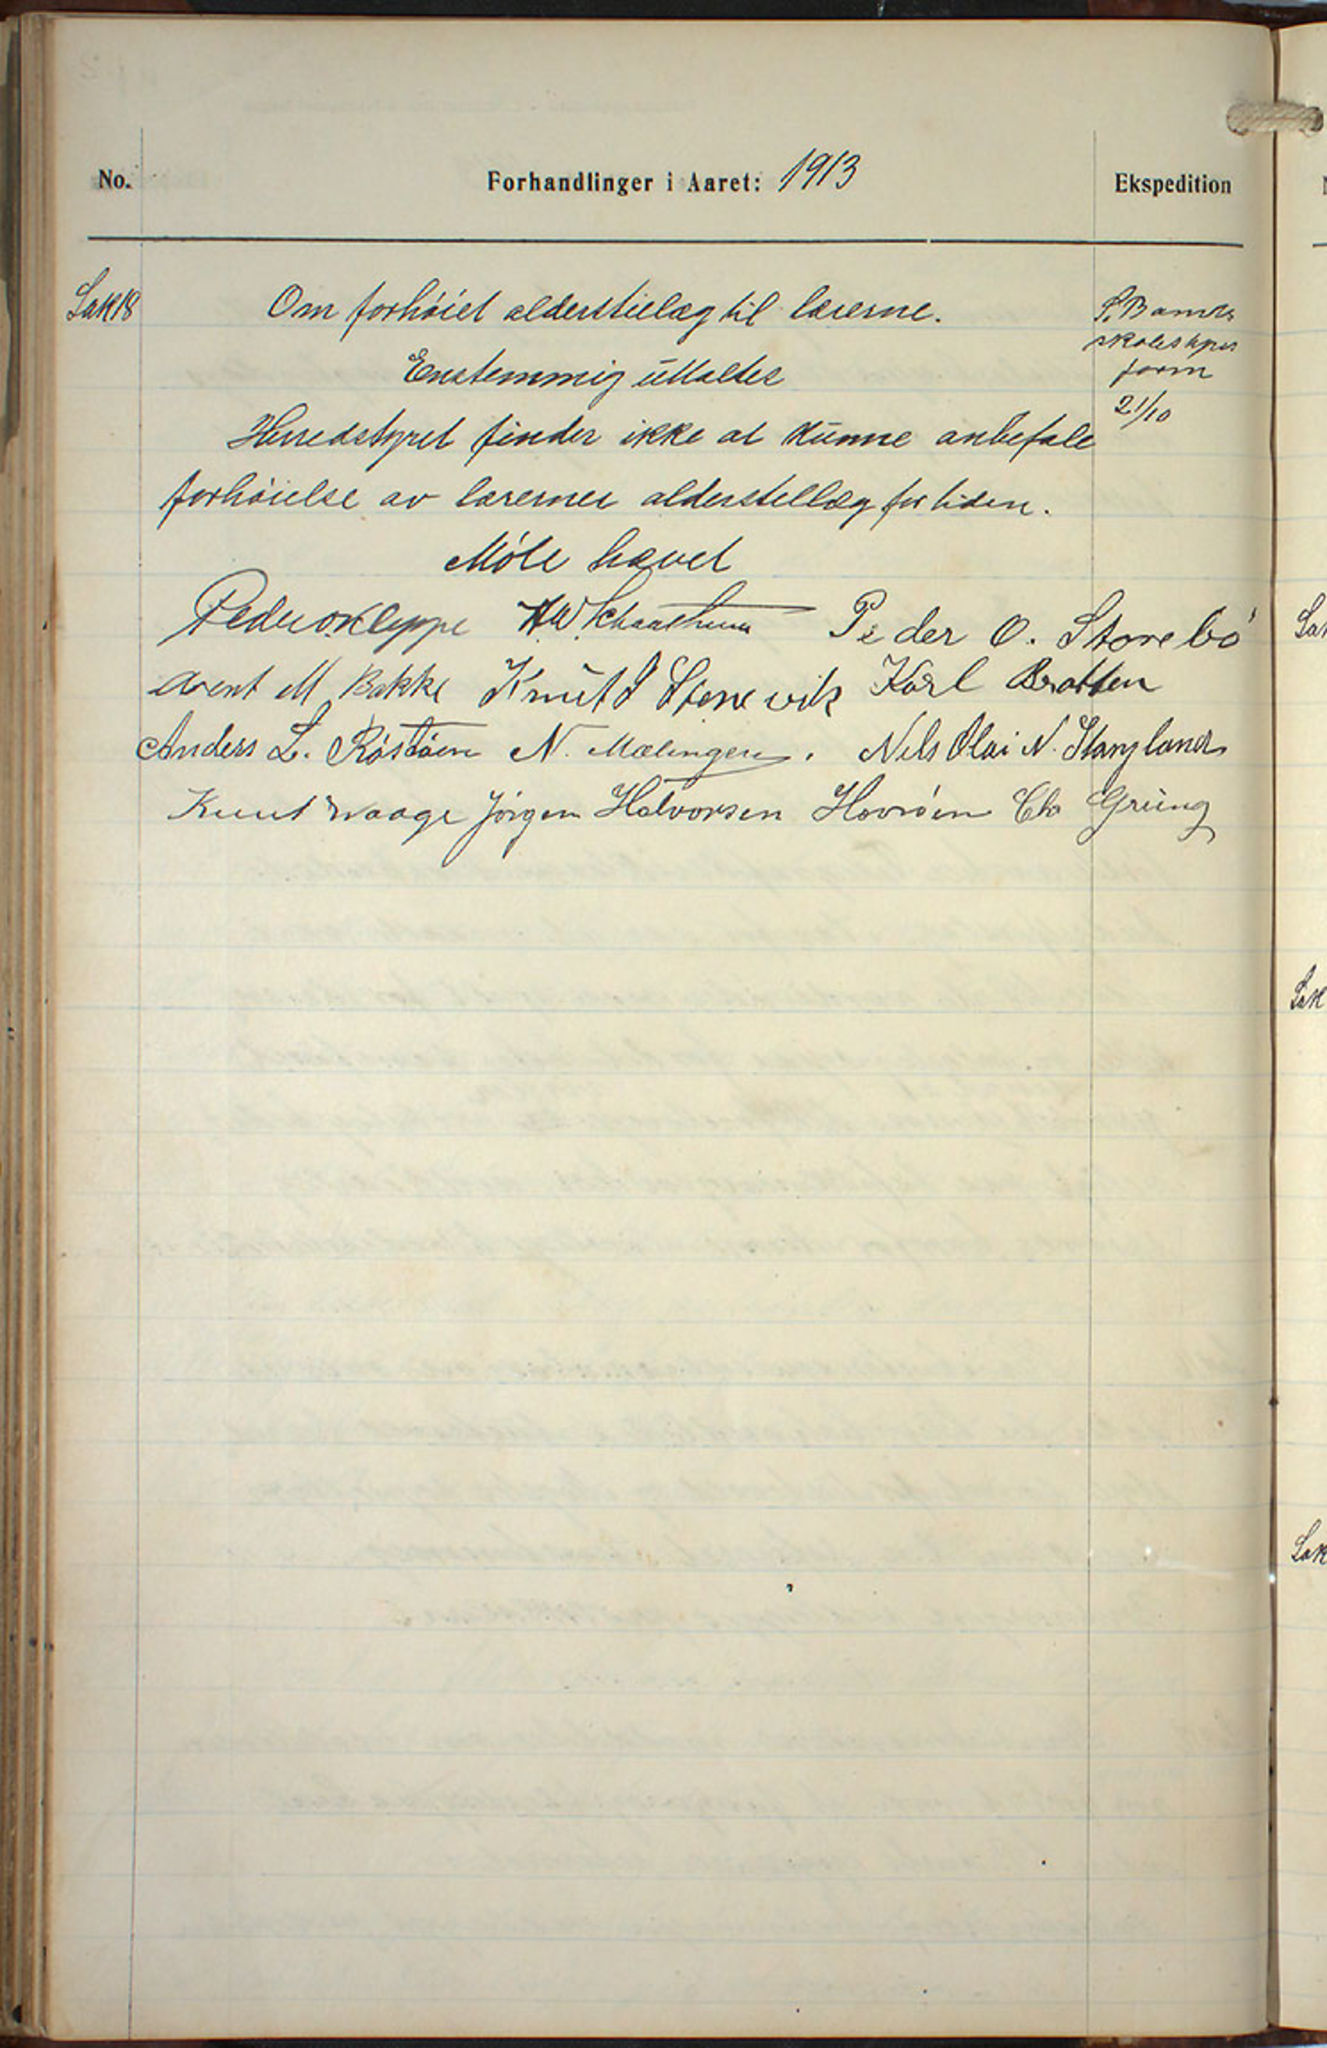 No. Forhandlinger i Aaret: 1913 Ekspedition
Sak 18 Om forhöiet alderstillæg til lærerne.
Enstemmig uttaltes
Herredstyret finder ikke at kunne anbefale
forhöielse av lærernes alderstillæg for tiden.
Möte hævet
skolestyres
form
21/10
Peder O Kleppe Peder O. Storebö
Arent M Bakke Knut J Stenevik Karl Bratten
Anders L. Röstöen N. Mælingen. Nils Olai N. Stangland
Knut Waage Jörgen Halvorsen Hovröen Chr Grung
Sak
Sak
Sak